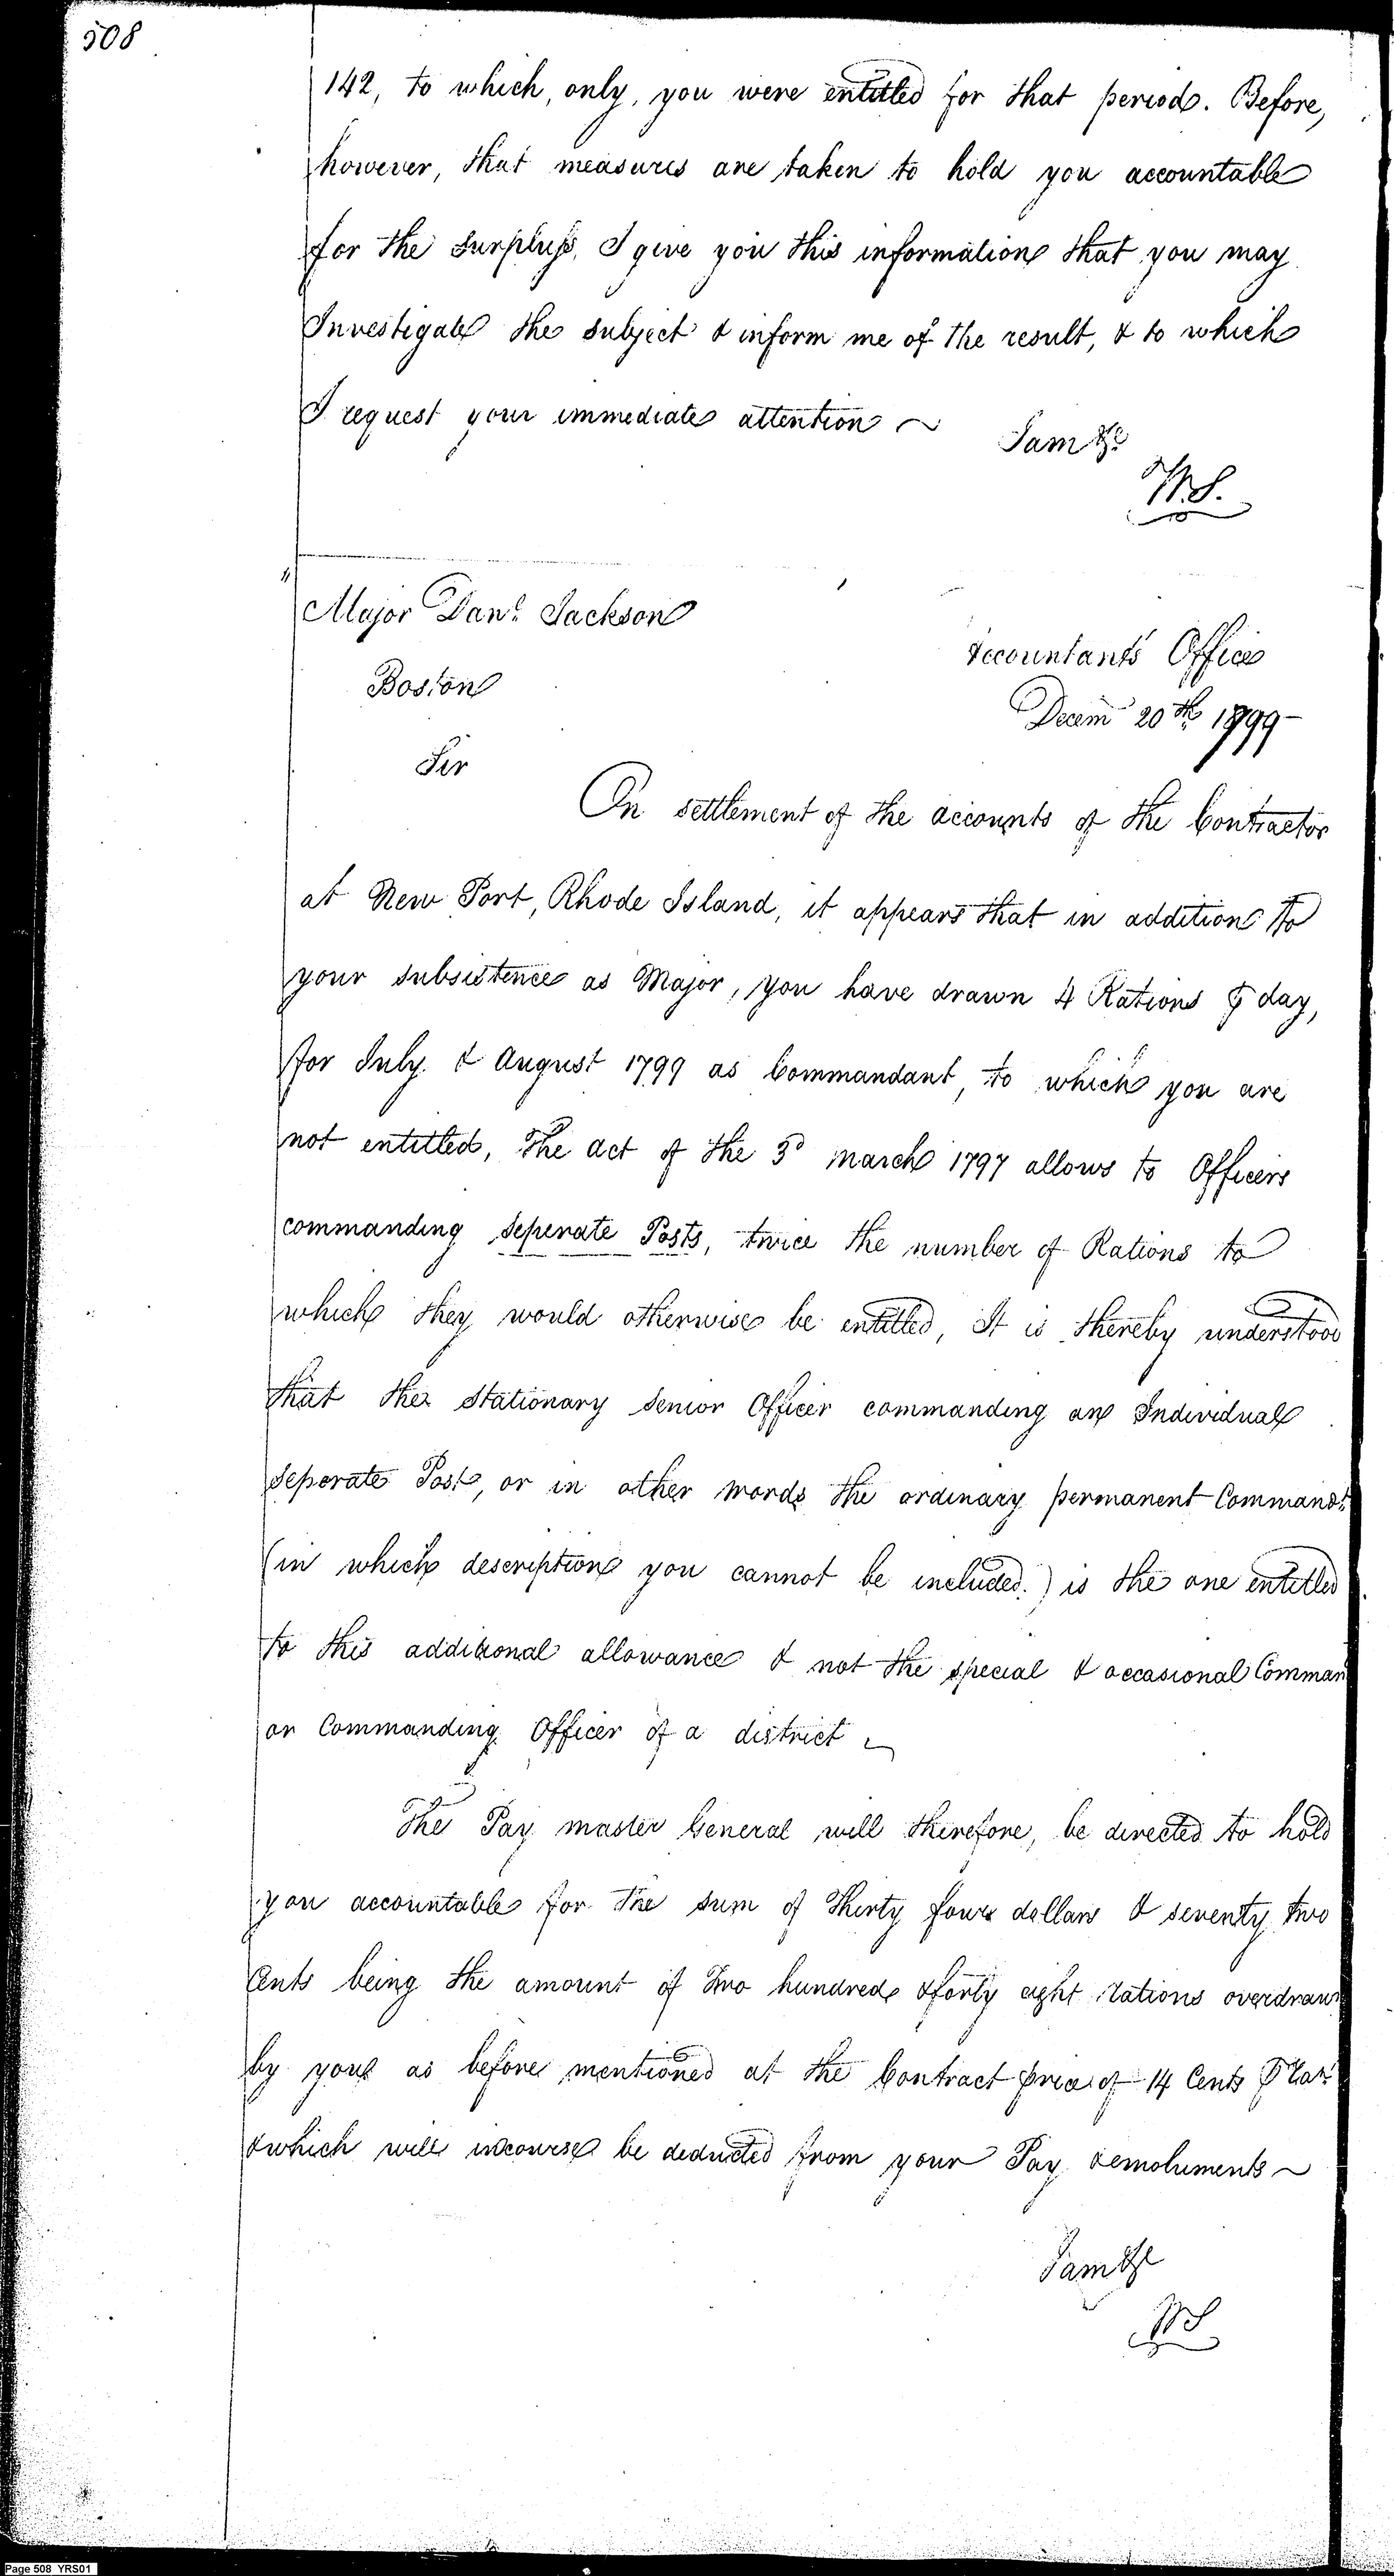 508
142, to which, only, you were entitled for that period. Before,
however, that measures are taken to hold you accountable
for the Surpluss, I give you this information that you may
Investigate the subject & inform me of the result, & to which
I request your immediate attention ~
I am &c
W.S.
Major Danl. Jackson
Boston
Accountants Office
Decem 20th 1799 -
Sir
On settlement of the accounts of the Contractor
at New Port, Rhode Island, it appears that in addition to
your subsistence as Major, you have drawn 4 Rations ⅌ day,
for July & August 1799 as Commandant, to which you are
not entitled, The act of the 3d March 1797 allows to Officers
commanding Seperate Posts, twice the number of Rations to
which they would otherwise be entitled, It is thereby understood
that the Stationary Senior Officer commanding an Individual
Seperate Post, or in other words the ordinary permanent Commandt
(in which description you cannot be included.) is the one entitled
to this additional allowance & not the special & occasional Comman
or Commanding Officer of a district ~
The Pay master General will therefore, be directed to hold
you accountable for the sum of Thirty four dollars & seventy two
Cents being the amount of Two hundred & forty eight rations overdrawn
by you as before mentioned at the Contract price of 14 Cents ⅌ Rat
& which will incourse be deducted from your Pay & emoluments ~
I am &c
WS
Page 508 YRS01